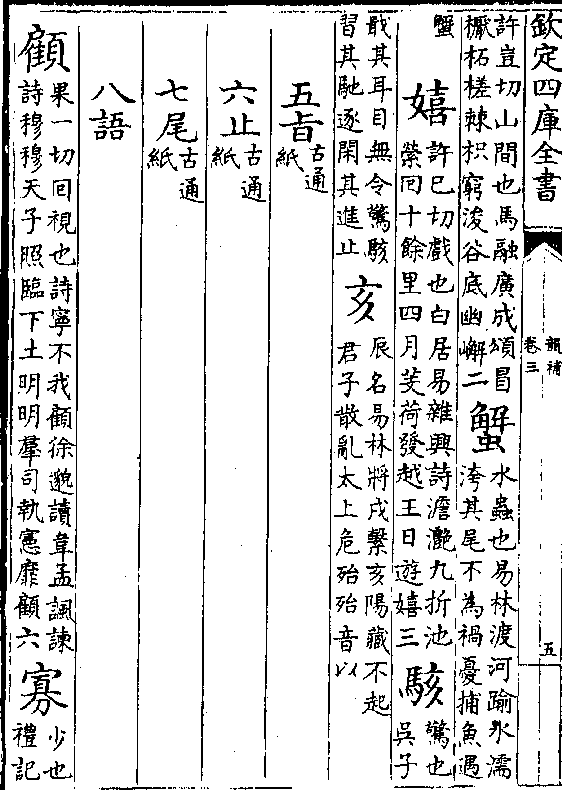 欽定四庫全書
韻補
卷三
五
許豈切山間也馬融廣成頌冒
橛柘槎棘枳窮浚谷底幽嶰二
蟹
水蟲也易林渡河踰水濡
洿其尾不為禍憂捕魚遇
蟹
嬉
許已切戲也白居易雜興詩澹灔九折池
縈囘十餘里四月芰荷發越王日遊嬉三
駭
驚也
吳子
戢其耳目無令驚駭
習其馳逐閑其進止
亥
辰名易林將戌繫亥陽藏不起
君子散亂太上危殆殆音以
五旨古通紙
六止古通紙
七尾古通紙
八語
顧
果一切囘視也詩寧不我顧徐邈讀韋孟諷諫
詩穆穆天子照臨下土明明羣司執憲靡顧六
寡
少也
禮記